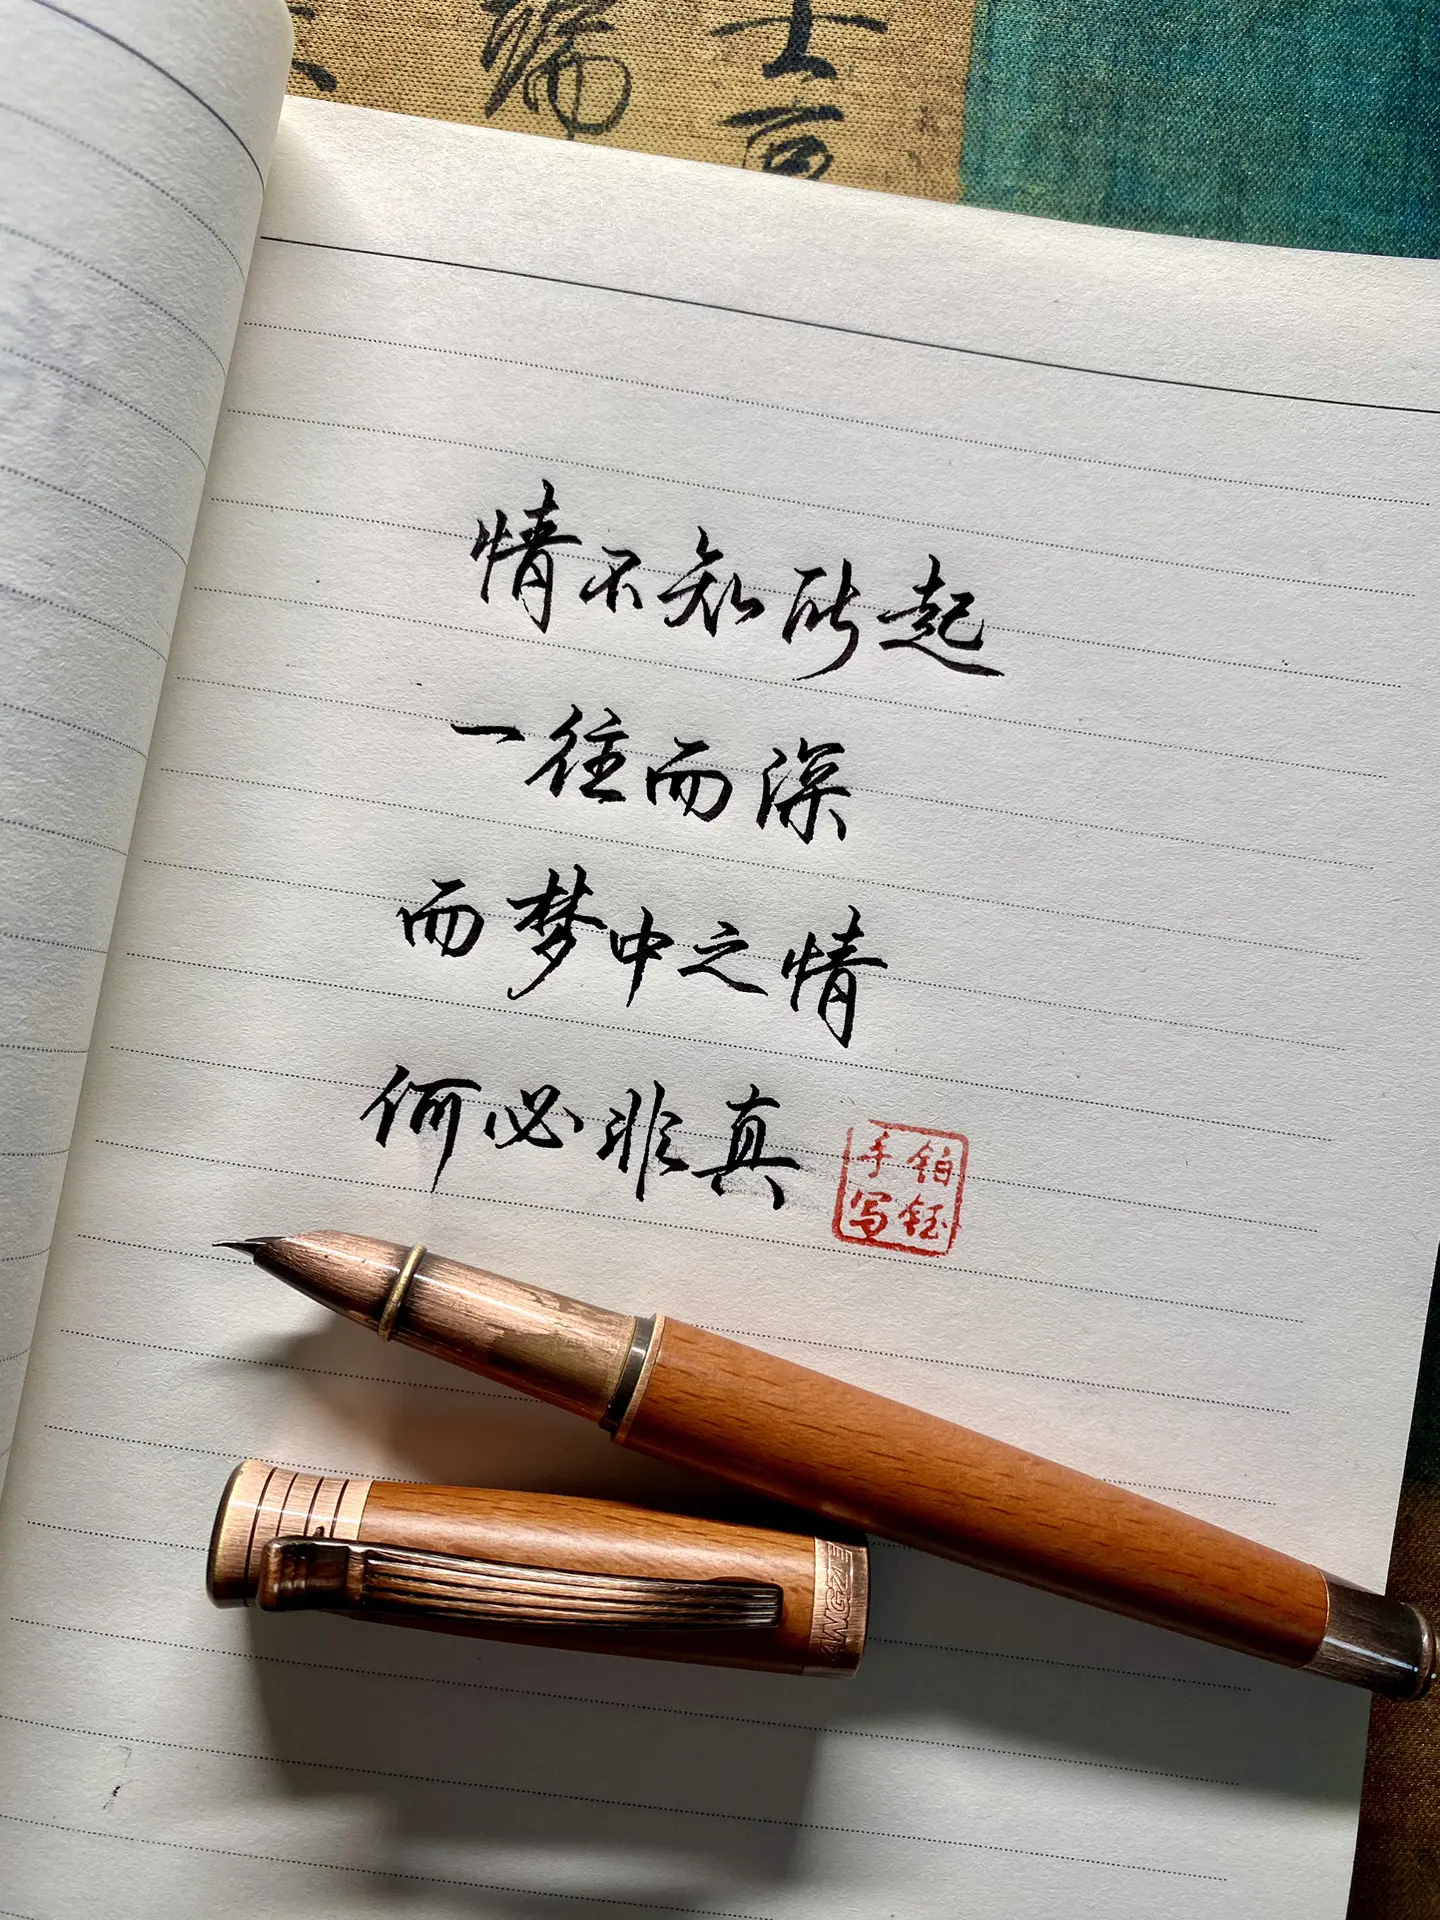 士
情不知所起
一往而深
而梦中之情
何必非真
铂钰
手写